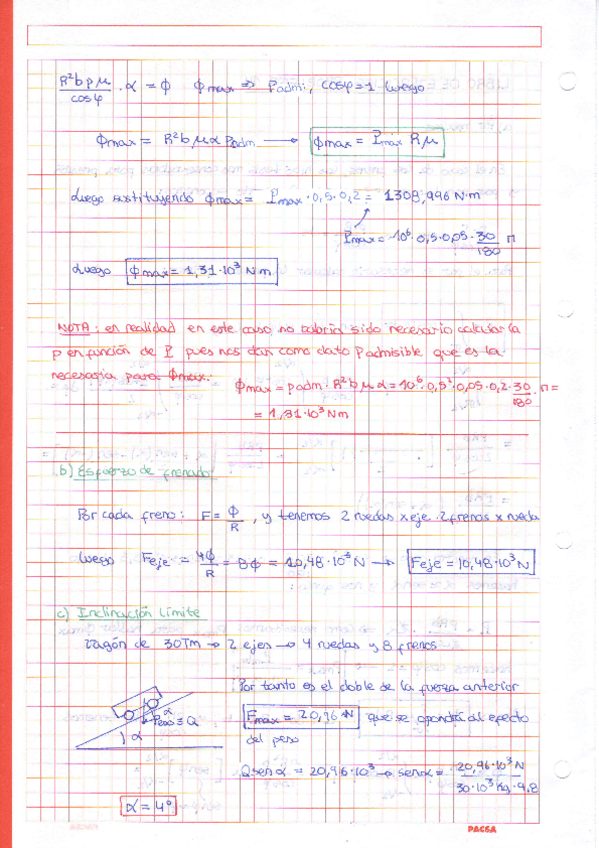 R²bpμ/cosφ · α = ϕ ϕmax ⇒ Padmi, cosφ=1 luego
ϕmax = R²bμα Padm → ϕmax = Pmax Rμ
Luego sustituyendo ϕmax = Pmax·0,5·0,2 = 1308,996 N·m
Pmax = 10⁶·0,5·0,05·30/180 π
Luego ϕmax = 1,31·10³ N·m
NOTA: en realidad en este caso no habría sido necesario calcular la
p en función de P pues nos dan como dato P admisible que es la
necesaria para ϕmax.
ϕmax = padm·R²bμα = 10⁶·0,5²·0,05·0,2·30/180·π =
= 1,31·10³ Nm
b) Esfuerzo de frenado
Por cada freno: F = ϕ/R, y tenemos 2 ruedas x eje · 2 frenos x rueda
luego Feje = 4ϕ/R = 8ϕ = 10,48·10³ N → Feje = 10,48·10³ N
c) Inclinación límite
vagón de 30Tm → 2 ejes → 4 ruedas y 8 frenos
Por tanto es el doble de la fuerza anterior
Fmax = 20,96 kN que se opondrá al efecto
del peso
α
Peso ≡ Q
α
Q sen α = 20,96·10³ → sen α = 20,96·10³ N/30·10³ kg·9,8
α = 4°
PACSA